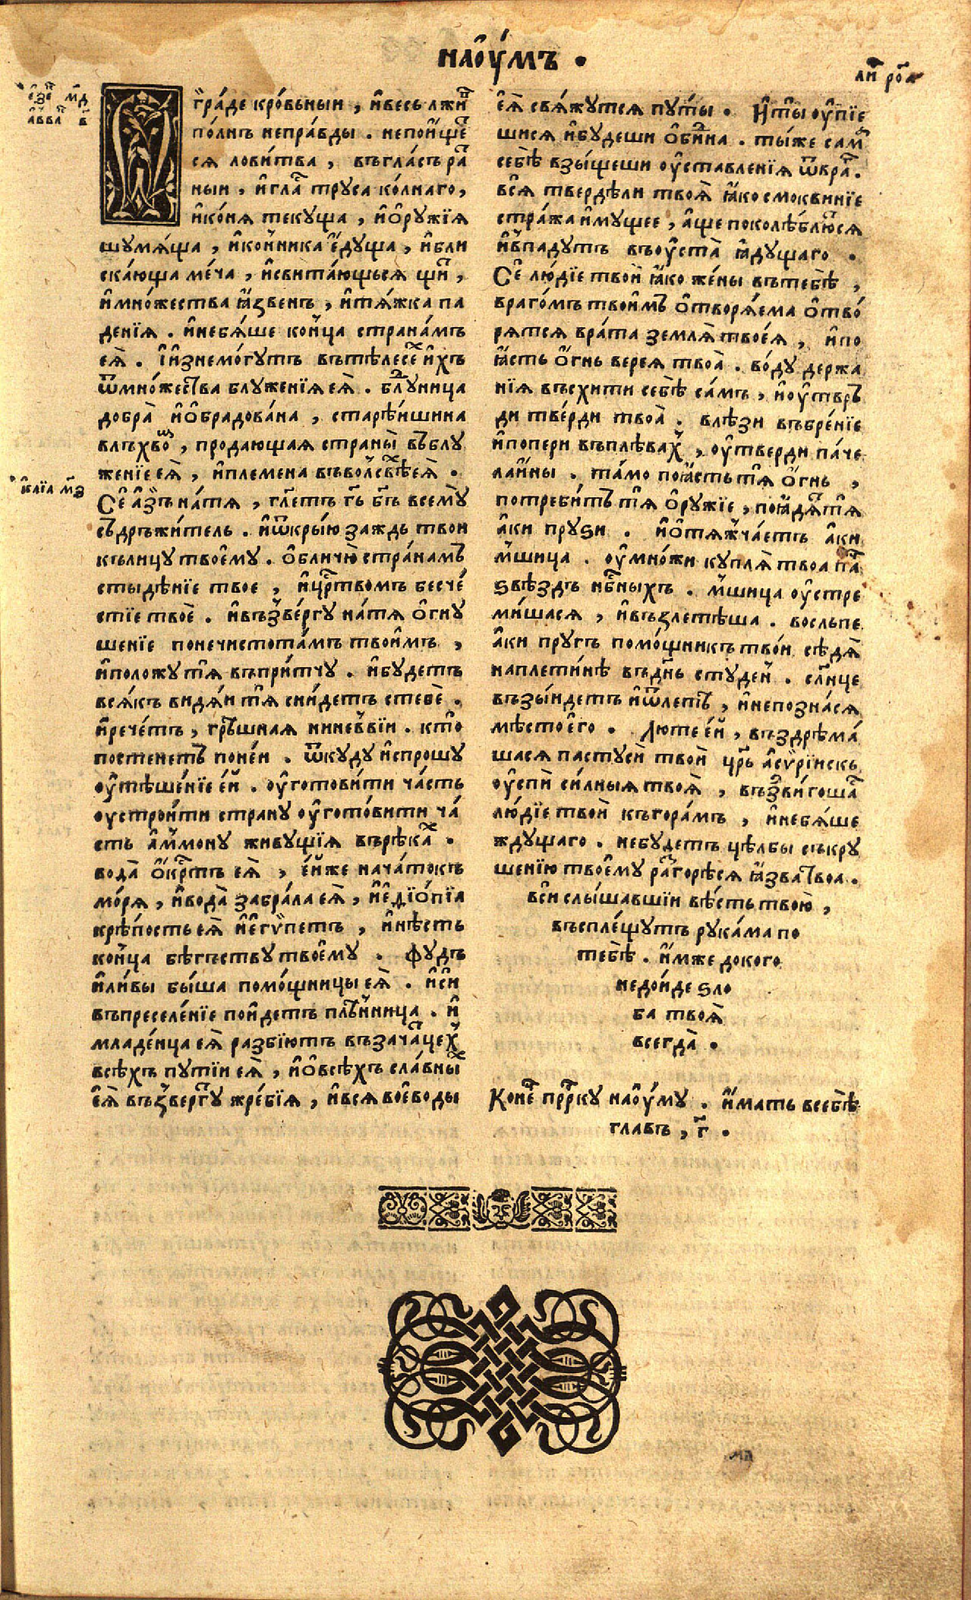 наѹ́мъ .
ли҇ ро҃а
е҆зе҇ м҃д
а҆вва҇ в҃
гра́де кро́вьныи , и҆весь лжи҇
по́лнъ непра́вды . непои҆ще҇
ся лови́тва , въгла́съ ра҇
ныи , и҆гла҇ труса ко́лнаго ,
и҆ко́ня текуща , и҆о҆ру́жїя
шумя́ща , и҆ко́нника ѣ҆́дуща , и҆бли
ска́юща ме́ча , и҆свита́ющься щи҇ ,
и҆мно́жества ꙗ҆́звенъ , и҆тя́жка па
де́нїя . и҆небя́ше ко́нца страна́мъ
еѧ̀ . и҆и҆знемо́гутъ вътѣлесе҇ и҆́хъ
ѿмно́жества блуже́нїя еѧ̀ . блу҇дница
добра̀ и҆о҆брадо́вана , старѣ́ишина
влъхво҇ , продающая страны̀ въблу
же́нїе еѧ̀ , и҆племена въволсвѣ҇ еѧ̀ .
и҆са́їа м҃з
Се̑ а҆́зъ на́тя , гл҃етъ г҃ь б҃гъ всемѹ
съдръжи́тель . и҆ѿкры́ю заждь твои
кълицу твое́му . о҆бличю̀ стра́намъ
стыдѣ́нїе твое , и҆ца҇ртвомъ бесче́
стїе твоѐ . и҆въꙁве́ргу на́тя о҆гну
ше́нїе понечистота́мъ твои́мъ ,
и҆положу́ тя въпри́тчу . и҆бу́детъ
вся́къ видя́и тя сни́детъ стебѐ .
и҆рече́тъ , грѣ́шная нине́ввїи . кто̀
посте́нетъ поне́и . ѿкуду и҆спрошу
ѹ҆тѣше́нїе е́й . ѹ҆гото́вити ча́сть
ѹстро́ити страну ѹ҆гото́вити ча́
сть а҆́ммону живущїя върѣка҇х .
вода̀ о҆́крт҇ъ еѧ̀ , е҆́иже нача́токъ
мо́ря , и҆вода̀ забра́ла еѧ̀ , и҆е҆дїо́пїа
крѣ́пость еѧ̀ и҆е҆гѵ́петъ , и҆нѣ́сть
ко́нца бѣгъству твое́му . фудъ
и҆ли́вы бы́ша помо́щницы еѧ̀ . и҆си́
въпреселе́нїе по́идетъ плѣ́нница . и҆
младе́нца еѧ̀ разбїю́тъ въза́ча́лцех
всѣ́хъ путїи еѧ̀ , и҆о҆всѣ́хъ сла́вны҇х
еѧ̀ въꙁве́ргу жре́бїя , и҆вся во́еводы
еѧ̀ свя́жутся пу́ты . И҆ты̀ ѹ҆пїе
шися и҆бу́деши о҆би҇дна . ты́же сам҇
себѣ̀ взы́щеши ѹ҆ставле́нїя ѿвра҇г .
вся̀ тверде́ли твоѧ̀ ꙗ҆́ко смоквинїе
стра́жа и҆му́щее , а҆́ще поколѣ́блю҇ся
и҆впаду́тъ въѹста̀ ꙗ҆ду́щаго .
Се̑ лю́дїе твои̂ ꙗ҆́ко же́ны вътебѣ̀ ,
враго́мъ твои́мъ о҆творя́ема о҆тво́
рятся врата̀ земля̀ твоея̀ , и҆по
ꙗ҆́сть о҆́гнь верея̀ твоа̀ . во́ду держа
нїя въсхити себѣ̀ са́мъ , и҆ѹтвръ
ди твръди твоа̀ . влѣ́зи въбре́нїе
и҆попери въплѣ́вах , ѹ҆тверди па́че
лаи́ны . та́мо поꙗ҆́сть тя о҆́гнь ,
потреби́тъ тя о҆ру́жїе , поꙗ҆дя҇ тя
а҆́ки пру́ѕи . и҆о҆тя́жчаетъ а҆́ки
м҃шица . ѹ҆мно́жи ку́пля̀ твоа па҇
ѕвѣ́здъ нб҇ныхъ . м҃шица ѹ҆стре
ми́шася , и҆възлетѣ́ша . восльпе
а҆́ки пругъ помо́щникъ тво́и сѣ́дя
наплети́нѣ въдн҇ь студе́н . сл҃нце
възы́идетъ и҆ѿлети́ , и҆непозна́ся
мѣ́сто е҆го̀ . Люте е҆́й , въздрѣма́
шася пастуси твои̂ ц҃рь а҆ссирїискъ
ѹ҆спи си́лныя твоѧ̀ , въꙁдви́гоша
лю́дїе твои̂ къгора́мъ , и҆небя́ше
жду́щаго . небу́детъ цѣ́лбы съкру
ше́нїю твое́му ра҇згорѣ́ся ꙗ҆́зва твоа .
вси̂ слы́шавшїи вѣ́сть твою̀ ,
въспле́щутъ рука́ма по
тебѣ̀ . и҆́мже докого̀
недо́иде ѕло
ба твоѧ̀
всегда̀ .
Коне҇ц пр҇рку нао́ѹму . и҆́мать всебѣ̀
главъ , г҃ .